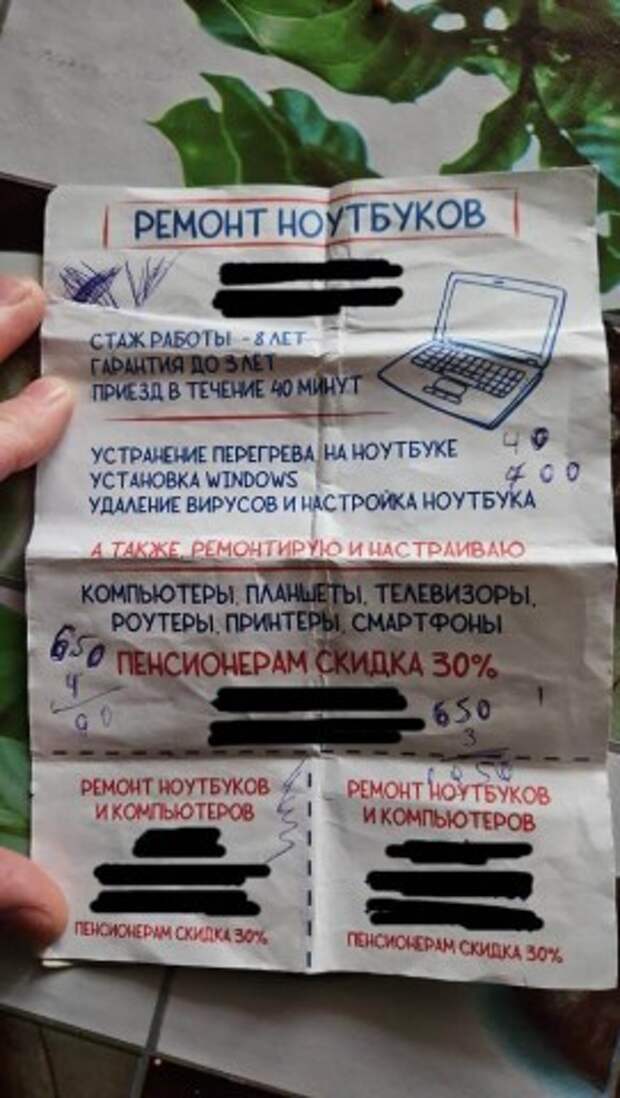 РЕМОНТ НОУТБУКОВ
СТАЖ РАБОТЫ - 8 ЛЕТ
ГАРАНТИЯ ДО 3 ЛЕТ
ПРИЕЗД В ТЕЧЕНИЕ 40 МИНУТ
УСТРАНЕНИЕ ПЕРЕГРЕВА НА НОУТБУКЕ
УСТАНОВКА WINDOWS
УДАЛЕНИЕ ВИРУСОВ И НАСТРОЙКА НОУТБУКА
40
А ТАКЖЕ, РЕМОНТИРУЮ И НАСТРАИВАЮ
КОМПЬЮТЕРЫ, ПЛАНШЕТЫ, ТЕЛЕВИЗОРЫ,
РОУТЕРЫ, ПРИНТЕРЫ, СМАРТФОНЫ
650
4
ПЕНСИОНЕРАМ СКИДКА 30%
650
3
РЕМОНТ НОУТБУКОВ
И КОМПЬЮТЕРОВ
ПЕНСИОНЕРАМ СКИДКА 30%
РЕМОНТ НОУТБУКОВ
И КОМПЬЮТЕРОВ
ПЕНСИОНЕРАМ СКИДКА 30%